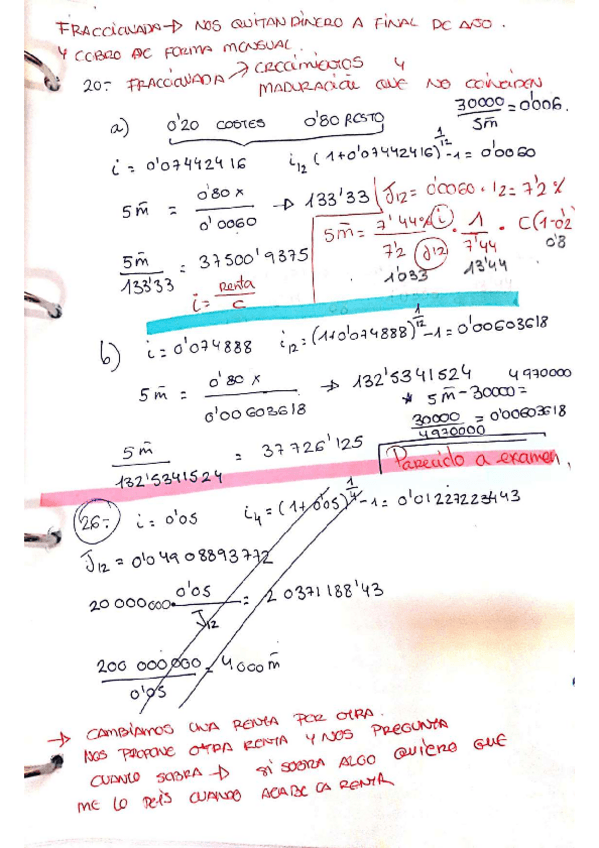 FRACCIONADA → NOS QUITAN DINERO A FINAL DE AÑO.
Y COBRO DE FORMA MENSUAL.
20- FRACCIONADA → CRECIMIENTOS Y
MADURACIÓN QUE NO COINCIDEN
30000/5m̄ = 0'006.
a) 0'20 COSTES 0'80 RESTO
i = 0'07442416 i12 (1+0'07442416)^1/12 -1 = 0'0060
5m̄ = 0'80x/0'0060 → 133'33 J12 = 0'0060 · 12 = 7'2%
5m̄/133'33 = 37500'9375
i = Renta/C
5m̄ = 7'44% (i)/7'2 (J12) · 1/7'44 · C(1-0'2)
0'8
1'033 13'44
b) i = 0'074888 i12 = (1+0'074888)^1/12 -1 = 0'00603618
5m̄ = 0'80x/0'00603618 → 132'5341524 4970000
* 5m̄-30000=
30000/4970000 = 0'00603618
5m̄/132'5341524 = 37726'125
Parecido a examen,
26- i = 0'05 i4 = (1+0'05)^1/4 -1 = 0'01227223443
J12 = 0'04908893772
20000000 · 0'05/J12 = 20371188'43
200 000 000/0'05 = 4000m̄
→ CAMBIAMOS UNA RENTA POR OTRA.
NOS PROPONE OTRA RENTA Y NOS PREGUNTA
CUANTO SOBRA → SI SOBRA ALGO QUIERO QUE
ME LO DEIS CUANDO ACABE LA RENTA